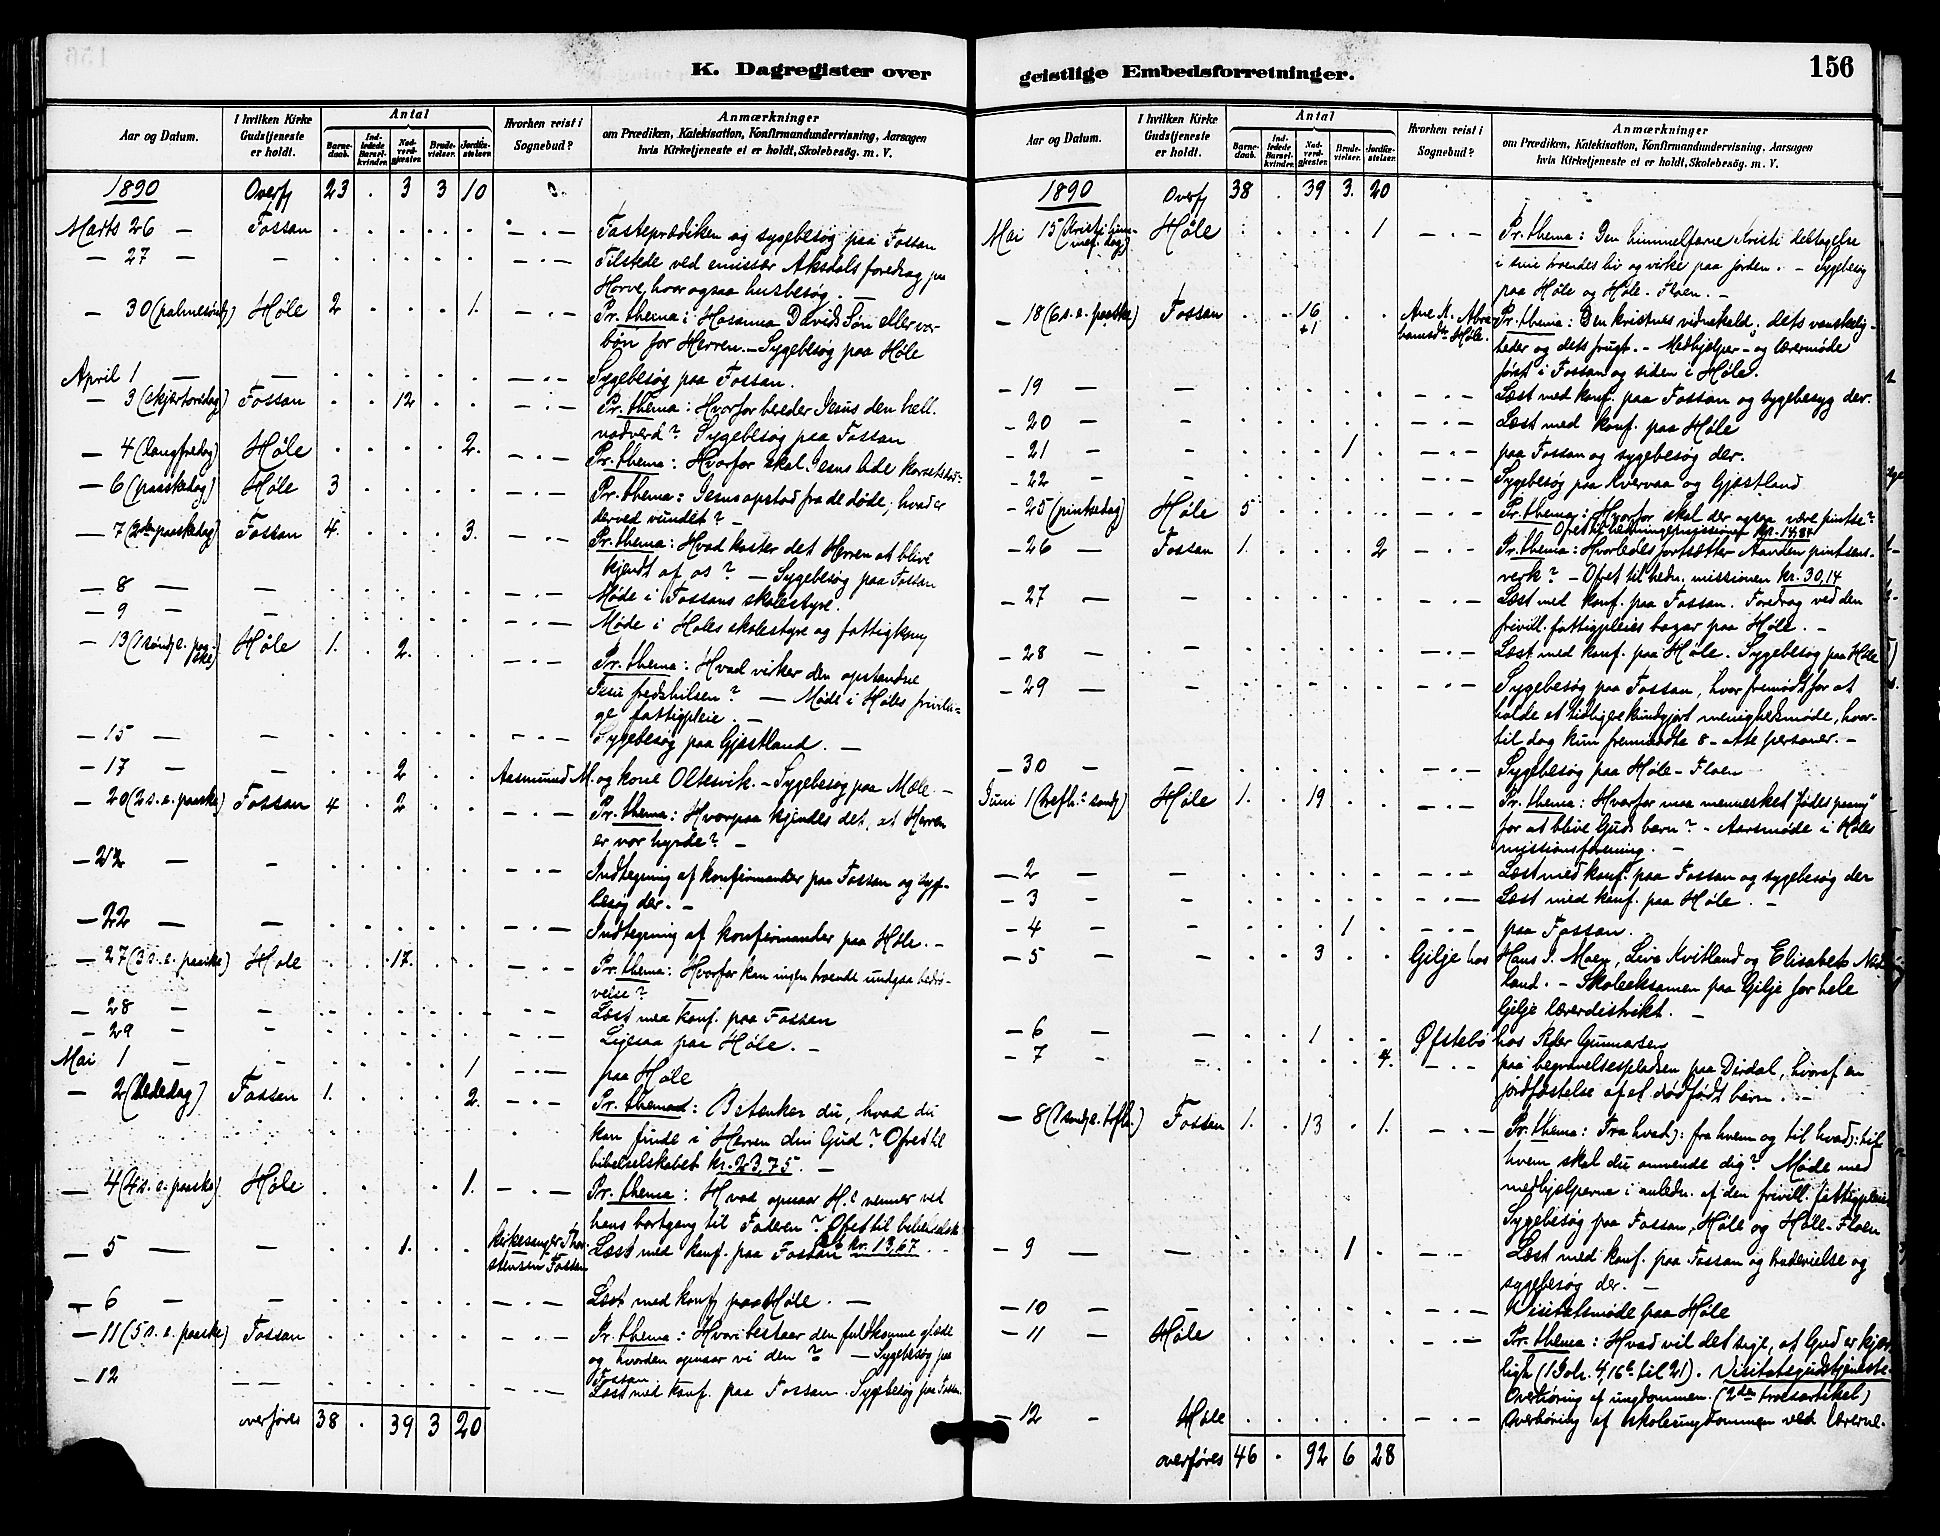 K. Dagregister over
Aar og Datum. I hvilken Kirke Gudstjeneste er holdt. Antal Barnedaab. Indledede Barselkvinder. Nadverdgjester. Brudevielser. Jordfæstelser. Hvorhen reist i Sognebud? Anmærkninger
om Prædiken, Katekisation, Konfirmandundervisning, Aarsagen
hvis Kirketjeneste ei er holdt, Skolebesög. m. V.
1890 Overfj 23 . 3 3 10
Marts 26 — Fossan . . . . . — . — Fasteprædiken og sygebesøg paa Fossan
— 27 — — . . . . . — . — Tilstede ved emissær Aksdals foredrag paa
Horve, hvor ogsaa husbesøg. —
— 30 (palmesønd) Høle 2 . . . 1. — . — Pr. thema: Hosanna Davids Søn eller vor
bøn for Herren. — Sygebesøg paa Høle
April 1 — — . . . . . — . — Sygebesøg paa Fossan.
— 3 (skjærtorsdag) Fossan . . 12 . . — . — Pr. thema: Hvorfor bereder Jesus den hell.
nadverd? Sygebesøg paa Fossan
— 4 (langfredag) Høle . . . . 2. — . — Pr. thema: Hvorfor skal Jesus lide korsets
— 6 (paaskedag) Høle 3 . . . . — . — Pr. thema: Jesus opstod fra de døde; hvad er
derved vundet? —
— 7 (2den paaskedag) Fossan 4. . . . 3. — . — Pr. thema: Hvad koster det Herren at blive
kjendt af os? — Sygebesøg paa Fossan
— 8 — — . . . . . — . — Møde i Fossans skolestyre.
— 9 — — . . . . . — . — Møde i Høles skolestyre og fattigkom
— 13 (1 sønd. e. paaske) Høle 1. . 2. . . — . — Pr. thema: Hvad virker den opstandne
Jesu fredshilsen? — Møde i Høles frivilli-
ge fattigpleie. —
— 15 — — . . . . . — . — Sygebesøg paa Gjæstland. —
— 17 — — . . 2 . . Aasmund M. og kone Oltesvik. — Sygebesøg paa Mæle —
— 20 (2 s. e. paaske) Fossan 4 . 2 . . — . — Pr. thema: Hvorpaa kjendes det, at Herren
er vor hyrde? —
— 21 — — . . . . . — . — Indtegning af konfirmander paa Fossan og syge-
besøg der. —
— 22 — — . . . . . — . — Indtegning af konfirmander paa Høle. —
— 27 (3 s. e. paaske) Høle . . 17. . . — . — Pr. thema: Hvorfor kan ingen troende undgaa bedrø-
velse? —
— 28 — — . . . . . — . — Læst med konf. paa Fossan
— 29 — — . . . . . — . — Ligesaa paa Høle. —
Mai 1 — — . . . . 1 — . — paa Høle
— 2 (bededag) Fossan 1. . . . 2. — . — Pr. thema: Betænker du, hvad du
kan finde i Herren din Gud? Ofret til
bibelselskabet kr. 23,75. —
— 4 (4 s. e. paaske) Høle . . . . 1. — . — Pr. thema: Hvad opnaar H.s venner ved
hans bortgang til Faderen? Ofret til bibelselsk.
kr. 13,67
— 5 — — . . 1. . . kirkesanger Thor- Læst med konf. paa Fossan
stensen Fossan
— 6 — — . . . . . — . — Læst med konf. paa Høle. —
— 11 (5 s. e. paaske) Fossan . . . . . — . — Pr. thema: Hvori bestaar den fuldkomne glæde
og hvordan opnaar vi den? — Sygebesøg paa
Fossan
— 12 — — . . . . . — . — Læst med konf. paa Fossan. Sygebesøg paa Fossan.
overføres 38 . 39 3 20
geistlige Embedsforretninger. 156
Aar og Datum. I hvilken Kirke Gudstjeneste er holdt. Antal Barnedaab. Indledede Barselkvinder. Nadverdgjester. Brudevielser. Jordfæstelser. Hvorhen reist i Sognebud? Anmærkninger
om Prædiken, Katekisation, Konfirmandundervisning, Aarsagen
hvis Kirketjeneste ei er holdt, Skolebesög. m. V.
1890 Overfj 38 . 39 3. 20
Mai 15 (Kristi himmelf. dag) Høle . . . . 1 — . — Pr. thema: Den himmelfarne Kristi deltagelse
i sine troendes liv og virke paa jorden. — Sygebesøg
paa Høle og Høle-Floen. —
— 18 (6 s. e. paaske) Fossan . . 16 +1 . . Ane K. Abra- hamsdtr Høle. Pr. thema: Den kristnes vidneskald; dets vanskelig-
heder og dets frugt. — Medhjælper- og lærermøde
først i Fossan og siden i Høle.
— 19 — — . . . . . — . — Læst med konf. paa Fossan og sygebesøg der.
— 20 — — . . . . . — . — Læst med konf. paa Høle
— 21 — — . . . 1 . — . — paa Fossan og sygebesøg der.
— 22 — — . . . . . — . — Sygebesøg paa Kvervaa og Gjæstland
— 25 (pintsedag) Høle 5 . . . . — . — Pr. thema: Hvorfor skal der ogsaa være pintse?
Ofret til hedningemissionen kr. 14,84
— 26 — Fossan 1. . . . 2 — . — Pr. thema: Hvorledes fortsætter Aanden pintsens
verk? — Ofret til hedn. missionen kr. 30,14
— 27 — — . . . . . — . — Læst med konf. paa Fossan. Foredrag ved den
frivill. fattigpleies bazar paa Høle. —
— 28 — — . . . . . — . — Læst med konf. paa Høle. Sygebesøg paa Høle
— 29 — — . . . . . — . — Sygebesøg paa Fossan, hvor fremmødt for at
holde et tidligere kundgjort menighedsmøde, hvor-
til dog kun fremmødte 8 — otte personer. —
— 30 — — . . . . . — . — Sygebesøg paa Høle-Floen
Juni 1 (trefh.s sønd) Høle 1. . 19 . . — . — Pr. thema: Hvorfor maa mennesket "fødes paany"
for at blive Guds barn? — Aarsmøde i Høles
missionsforening. —
— 2 — — . . . . . — . — Læst med konf. paa Fossan og sygebesøg der
— 3 — — . . . . . — . — Læst med konf. paa Høle. —
— 4 — — . . . 1 . — . — paa Fossan.
— 5 — — . . 3 . . Gilje hos Hans S. Moen, Live Kvitland og Elisabet Ned
land. — Skoleeksamen paa Gilje for hele
Gilje lærerdistrikt. —
— 6 — — . . 1 . . Øfstebø hos Peder Gunnarsen
— 7 — . . . . 4. — . — paa begravelsespladsen paa Dirdal, hvoraf en
jordfæstelse af et dødfødt barn. —
— 8 (1 sønd. e. trefh.) Fossan 1. . 13 . 1. — . — Pr. thema: Fra hvad ): fra hvem og til hvad ): til
hvem skal du omvende dig? Møde med
medhjælperne i anledn. af den frivill. fattigpleie
Sygebesøg paa Fossan, Høle og Høle-Floen
— 9 — — . . . 1 . — . — Læst med konf. paa Fossan og brudevielse og
sygebesøg der. —
— 10 — — . . . . . — . — Visitatsmøde paa Høle
— 11 — Høle . . . . . — . — Pr. thema: Hvad vil det sige, at Gud er kjær-
lighed (1 Joh. 4, 16b til 21). Visitatsgudstjeneste.
Overhøring af ungdommen. (2den trosartikel)
— 12 — Høle . . . . . — . — Overhøring af skoleungdommen ved lærerne.
overføres 46 . 92 6 28